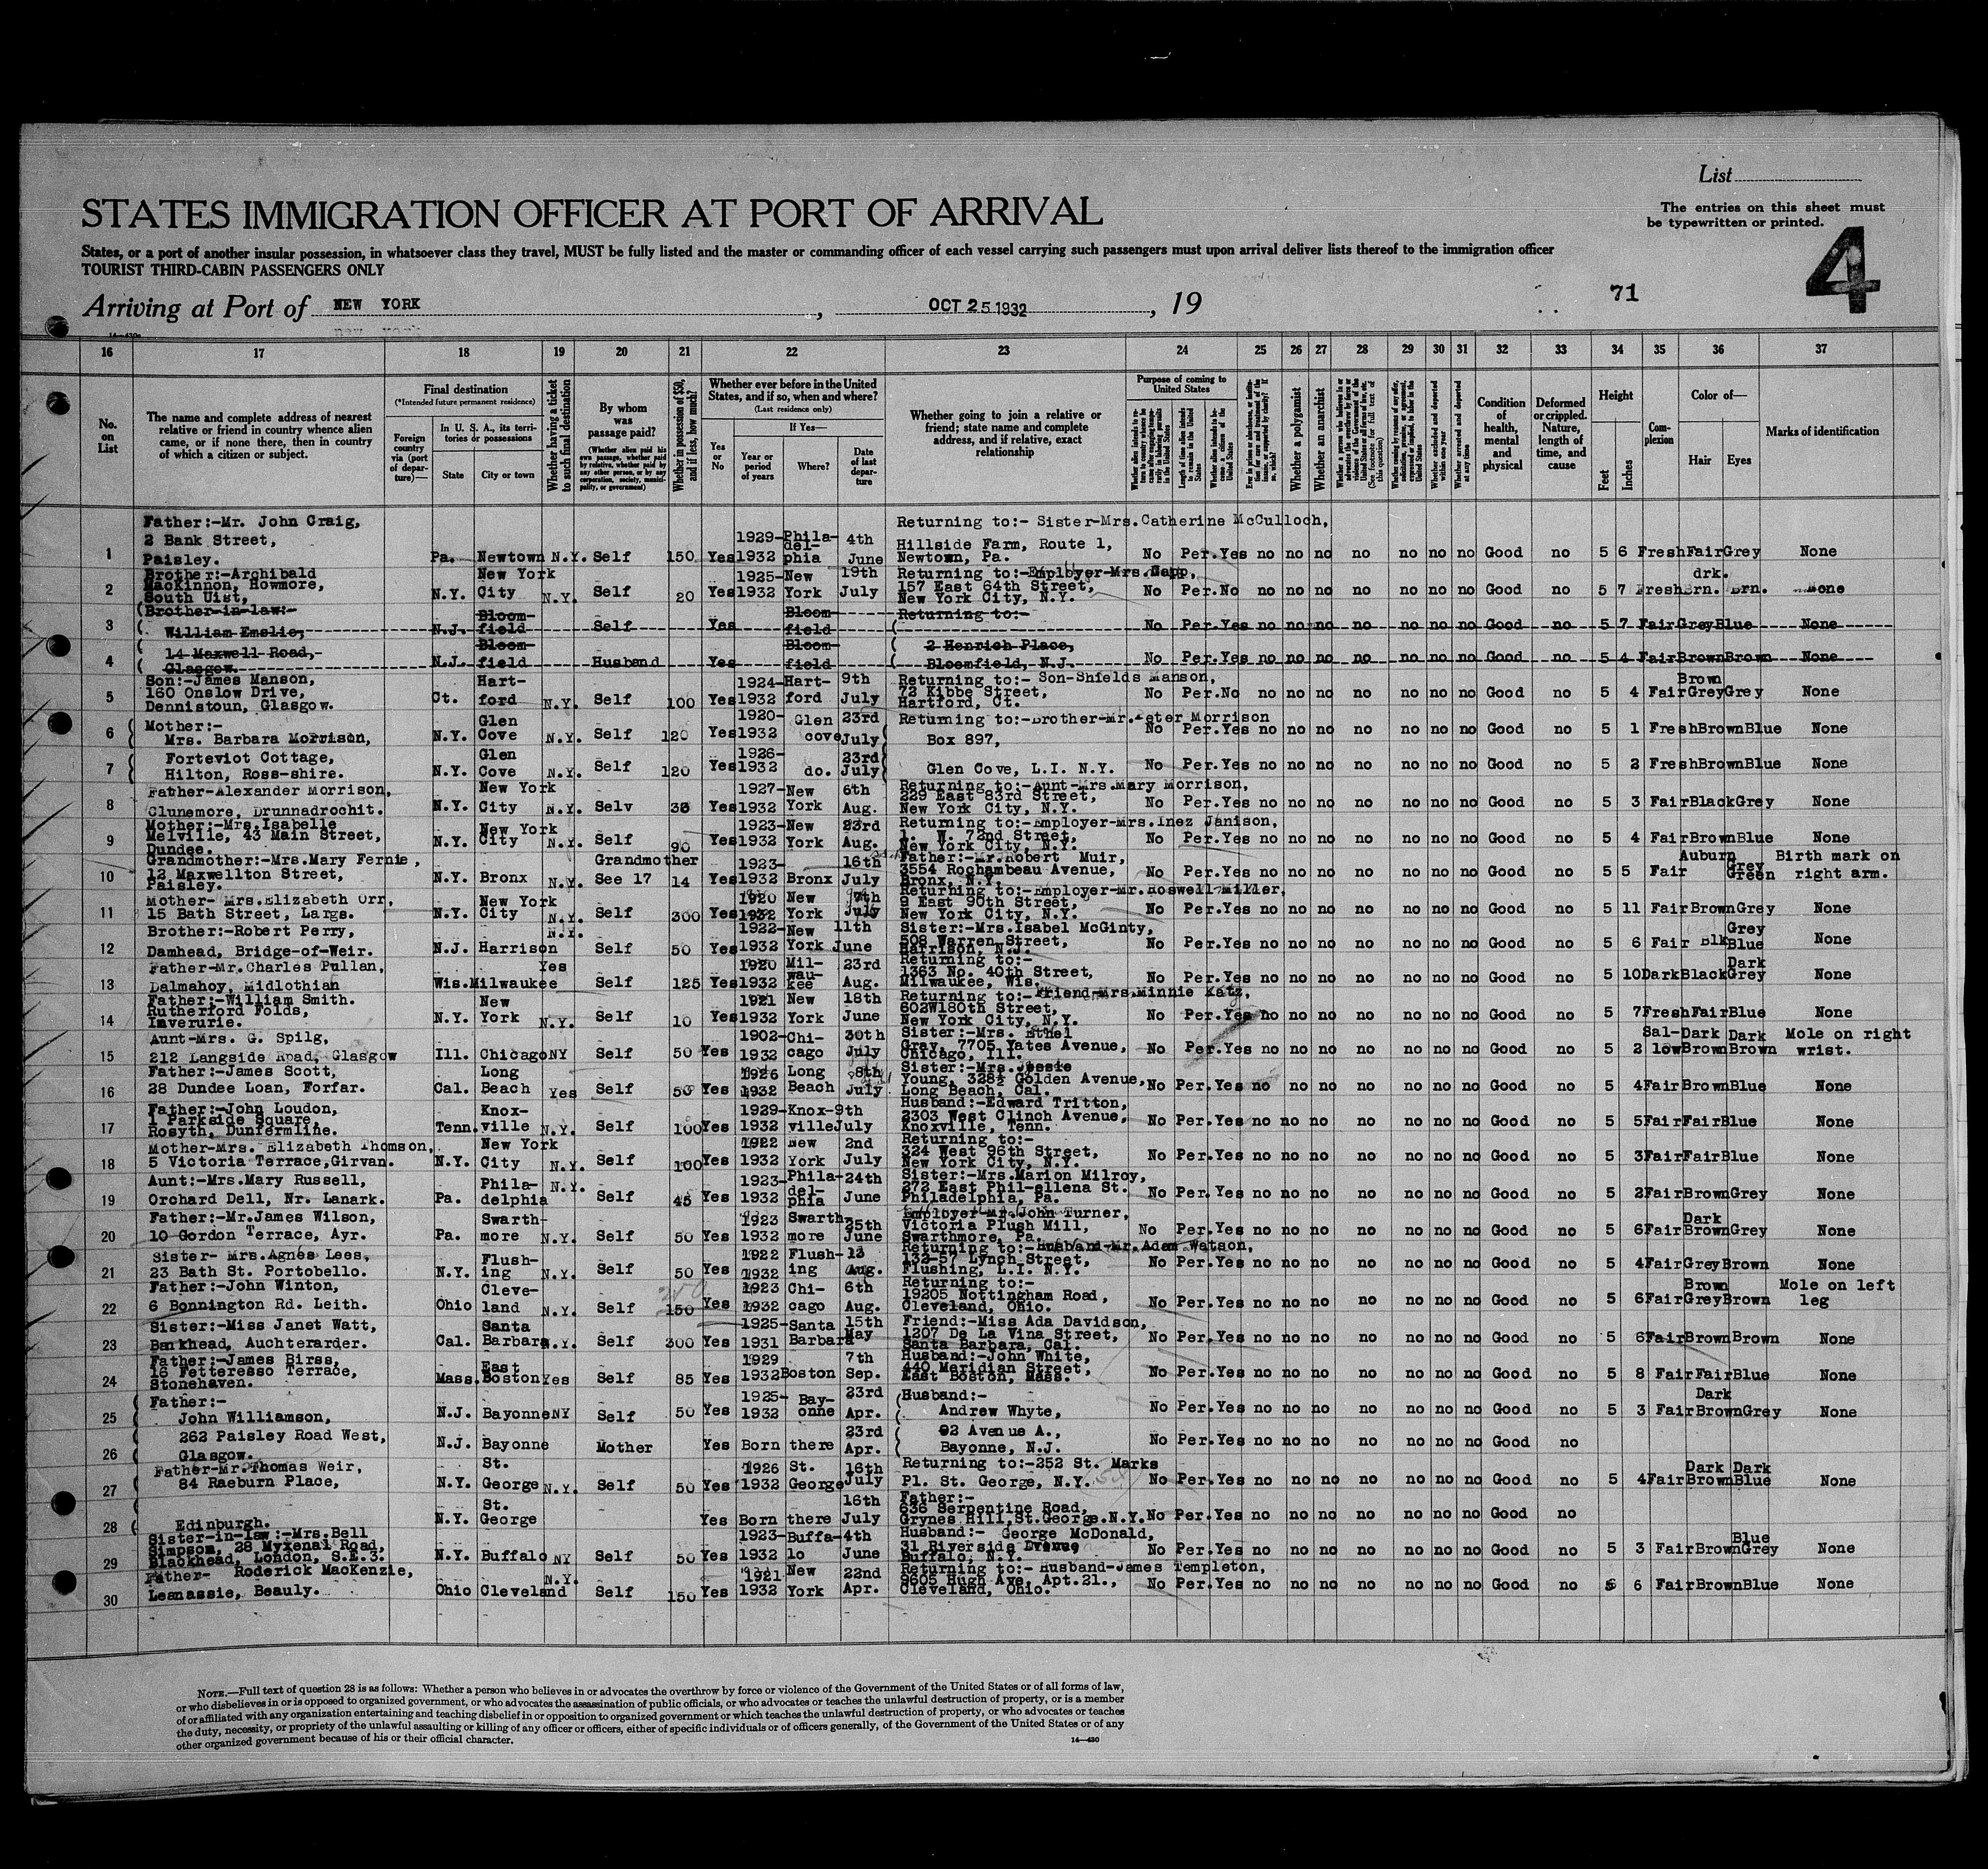 List
STATES IMMIGRATION OFFICER AT PORT OF ARRIVAL
The entries on this sheet must
be typewritten or printed.
4
States, or a port of another insular possession, in whatsoever class they travel, MUST be fully listed and the master or commanding officer of each vessel carrying such passengers must upon arrival deliver lists thereof to the immigration officer
TOURIST THIRD-CABIN PASSENGERS ONLY
Arriving at Port of NEW YORK, OCT 25 1932, 19
71
16 17 18 19 20 21 22 23 24 25 26 27 28 29 30 31 32 33 34 35 36 37
No. on List
The name and complete address of nearest relative or friend in country whence alien came, or if none there, then in country of which a citizen or subject.
Final destination
(*Intended future permanent residence)
Foreign country via (port of departure)—
In U. S. A., its territories or possessions
State
City or town
Whether having a ticket to such final destination
By whom was passage paid?
(Whether alien paid his own passage, whether paid by relative, whether paid by any other person, or by any corporation, society, municipality, or government)
Whether in possession of $50, and if less, how much?
Whether ever before in the United States, and if so, when and where?
(Last residence only)
Yes or No
If Yes—
Year or period of years
Where?
Date of last departure
Whether going to join a relative or friend; state name and complete address, and if relative, exact relationship
Purpose of coming to United States
Length of time alien intends to remain in the United States
Whether alien intends to become a citizen of the United States
Whether a polygamist
Whether an anarchist
Whether excluded and deported within one year
Whether arrested and deported at any time
Condition of health, mental and physical
Deformed or crippled. Nature, length of time, and cause
Height
Feet
Inches
Complexion
Color of—
Hair
Eyes
Marks of identification
1 Father:-Mr. John Craig, 2 Bank Street, Paisley. Pa. Newtown N.Y. Self 150 Yes 1929-1932 Phila-del-phia 4th June Returning to:- Sister-Mrs.Catherine McCulloch, Hillside Farm, Route 1, Newtown, Pa. No Per. Yes no no no no no no no Good no 5 6 Fresh Fair Grey None
2 Brother:-Archibald MacKinnon, Howmore, South Uist, N.Y. New York City N.Y. Self 20 Yes 1925-1932 New York 19th July Returning to:-Employer-Mrs. 157 East 64th Street, New York City, N.Y. No Per. No no no no no no no no Good no 5 7 Fresh drk. Brn. Brn. None
3 (Brother-in-law:- William Emslie, N.J. Bloom-field Self Yes Bloom-field Returning to:- No Per. Yes no no no no no no no Good no 5 7 Fair Grey Blue None
4 ( 14 Maxwell Road, Glasgow. N.J. Bloom-field Husband Yes Bloom-field ( 2 Henrich Place, Bloomfield, N.J. No Per. Yes no no no no no no no Good no 5 4 Fair Brown Brown None
5 Son:-James Manson, 160 Onslow Drive, Dennistoun, Glasgow. Ct. Hart-ford N.Y. Self 100 Yes 1924-1932 Hart-ford 9th July Returning to:- Son-Shields Manson, 72 Kibbe Street, Hartford, Ct. No Per. No no no no no no no no Good no 5 4 Fair Brown Grey Grey None
6 ( Mother:- Mrs. Barbara Morrison, N.Y. Glen Cove N.Y. Self 120 Yes 1920-1932 Glen cove 23rd July Returning to:-Brother-Mr.Peter Morrison Box 897, No Per. Yes no no no no no no no Good no 5 1 Fresh Brown Blue None
7 ( Forteviot Cottage, Hilton, Ross-shire. N.Y. Glen Cove N.Y. Self 120 Yes 1926-1932 do. 23rd July Glen Cove, L.I. N.Y. No Per. Yes no no no no no no no Good no 5 2 Fresh Brown Blue None
8 Father-Alexander Morrison, Clunemore, Drunnadrochit. N.Y. New York City N.Y. Selv Yes 1927-1932 New York 6th Aug. Returning to:-Aunt-Mrs.Mary Morrison, 229 East 83rd Street, New York City, N.Y. No Per. Yes no no no no no no no Good no 5 3 Fair Black Grey None
9 Mother:-Mrs.Isabelle Melville, 43 Main Street, Dundee. N.Y. New York City N.Y. Self 90 Yes 1923-1932 New York 23rd Aug. Returning to:-Employer-Mrs.Inez Janison, 1. W. 72nd Street, New York City, N.Y. No Per. Yes no no no no no no no Good no 5 4 Fair Brown Blue None
10 Grandmother:-Mrs.Mary Fernie, 12 Maxwellton Street, Paisley. N.Y. Bronx N.Y. Grandmother See 17 14 Yes 1923-1932 Bronx 16th July Father:-Mr.Robert Muir, 3554 Rochambeau Avenue, Bronx, N.Y. No Per. Yes no no no no no no no Good no 5 5 Fair Auburn Grey Green Birth mark on right arm.
11 Mother- Mrs.Elizabeth Orr, 15 Bath Street, Largs. N.Y. New York City N.Y. Self 300 Yes 1920 1932 New York 7th July Returning to:-Employer-Mr.Roswell Miller, 9 East 90th Street, New York City, N.Y. No Per. Yes no no no no no no no Good no 5 11 Fair Brown Grey None
12 Brother:-Robert Perry, Damhead, Bridge-of-Weir. N.J. Harrison N.Y. Self 50 Yes 1922-1932 New York 11th June Sister:-Mrs.Isabel McGinty, 508 Warren Street, Harrison, N.J. No Per. Yes no no no no no no no Good no 5 6 Fair Blk Grey Blue None
13 Father-Mr.Charles Pullan, Dalmahoy, Midlothian Wis. Milwaukee Yes Self 125 Yes 1920 1932 Mil-wau-kee 23rd Aug. Returning to:- 1363 No. 40th Street, Milwaukee, Wis. No Per. Yes no no no no no no no Good no 5 10 Dark Black Dark Grey None
14 Father:-William Smith. Rutherford Folds, Inverurie. N.Y. New York N.Y. Self 10 Yes 1921 1932 New York 18th June Returning to:-Friend-Mrs.Minnie Katz, 602W180th Street, New York City, N.Y. No Per. Yes no no no no no no no Good no 5 7 Fresh Fair Blue None
15 Aunt-Mrs. G. Spilg, 212 Langside Road, Glasgow Ill. Chicago NY Self 50 Yes 1902-1932 Chi-cago 30th July Sister:-Mrs. Ethel Gray, 7705 Yates Avenue, Chicago, Ill. No Per. Yes no no no no no no no Good no 5 2 Sal-low Dark Brown Dark Brown Mole on right wrist.
16 Father:-James Scott, 28 Dundee Loan, Forfar. Cal. Long Beach Yes Self 50 Yes 1926 1932 Long Beach 8th July Sister:-Mrs.Jessie Young, 328½ Golden Avenue, Long Beach, Cal. No Per. Yes no no no no no no no Good no 5 4 Fair Brown Blue None
17 Father:-John Loudon, 1 Parkside Square, Rosyth, Dunfermline. Tenn. Knox-ville N.Y. Self 100 Yes 1929-1932 Knox-ville 9th July Husband:-Edward Tritton, 2303 West Clinch Avenue, Knoxville, Tenn. No Per. Yes no no no no no no no Good no 5 5 Fair Fair Blue None
18 Mother-Mrs. Elizabeth Thomson, 5 Victoria Terrace,Girvan. N.Y. New York City N.Y. Self 100 Yes 1922 1932 New York 2nd July Returning to:- 324 West 96th Street, New York City, N.Y. No Per. Yes no no no no no no no Good no 5 3 Fair Fair Blue None
19 Aunt:-Mrs.Mary Russell, Orchard Dell, Nr. Lanark. Pa. Phila-delphia N.Y. Self 45 Yes 1923-1932 Phila-del-phia 24th June Sister:-Mrs.Marion Milroy, 272 East Phil-ellena St. Philadelphia, Pa. No Per. Yes no no no no no no no Good no 5 2 Fair Brown Grey None
20 Father:-Mr.James Wilson, 10 Gordon Terrace, Ayr. Pa. Swarth-more N.Y. Self 50 Yes 1923 1932 Swarth-more 25th June Employer-Mr.John Turner, Victoria Plush Mill, Swarthmore, Pa. No Per. Yes no no no no no no no Good no 5 6 Fair Dark Brown Grey None
21 Sister- Mrs.Agnes Lees, 23 Bath St. Portobello. N.Y. Flush-ing N.Y. Self 50 Yes 1922 1932 Flush-ing Aug. Returning to:-Husband-Mr.Adam Watson, 132-57 Lynch Street, Flushing, L.I. N.Y. No Per. Yes no no no no no no no Good no 5 4 Fair Grey Brown None
22 Father:-John Winton, 6 Bonnington Rd. Leith. Ohio Cleve-land N.Y. Self 150 Yes 1923 1932 Chi-cago 6th Aug. Returning to:- 19205 Nottingham Road, Cleveland, Ohio. No Per. Yes no no no no no no no Good no 5 6 Fair Brown Grey Brown Mole on left leg
23 Sister:-Miss Janet Watt, Barkhead, Auchterarder. Cal. Santa Barbara N.Y. Self 300 Yes 1925-1931 Santa Barbara 15th May Friend:-Miss Ada Davidson, 1207 De La Vina Street, Santa Barbara, Cal. No Per. Yes no no no no no no no Good no 5 6 Fair Brown Brown None
24 Father:-James Birss, 16 Fetteresso Terrace, Stonehaven. Mass. East Boston Yes Self 85 Yes 1929 1932 Boston 7th Sep. Husband:-John White, 440 Meridian Street, East Boston, Mass. No Per. Yes no no no no no no no Good no 5 8 Fair Fair Blue None
25 ( Father:- John Williamson, N.J. Bayonne NY Self 50 Yes 1925-1932 Bay-onne 23rd Apr. (Husband:- Andrew Whyte, No Per. Yes no no no no no no no Good no 5 3 Fair Dark Brown Grey None
26 262 Paisley Road West, Glasgow. N.J. Bayonne Mother Yes Born there 23rd Apr. ( 92 Avenue A., Bayonne, N.J. No Per. Yes no no no no no no no Good no
27 Father-Mr.Thomas Weir, 84 Raeburn Place, N.Y. St. George N.Y. Self 50 Yes 1926 1932 St. George 16th July Returning to:-252 St. Marks Pl. St. George, N.Y. No Per. Yes no no no no no no no Good no 5 4 Fair Dark Brown Dark Blue None
28 ( Edinburgh. N.Y. St. George Yes Born there 16th July Father:- 636 Serpentine Road, Grynes Hill,St.George.N.Y. No Per. Yes no no no no no no no Good no
29 Sister-in-law:-Mrs.Bell Simpson, 28 Myxenal Road, Blackhead, London, S.E.3. N.Y. Buffalo NY Self 50 Yes 1923-1932 Buffa-lo 4th June Husband:- George McDonald, 31 Riverside Avenue Buffalo, N.Y. No Per. Yes no no no no no no no Good no 5 3 Fair Brown Blue Grey None
30 Father- Roderick MacKenzie, Leanassie, Beauly. Ohio Cleveland N.Y. Self 150 Yes 1921 1932 New York 22nd Apr. Returning to:- Husband-James Templeton, 9605 Hugh Ave. Apt.21., Cleveland, Ohio. No Per. Yes no no no no no no no Good no 5 6 Fair Brown Blue None
NOTE.—Full text of question 28 is as follows: Whether a person who believes in or advocates the overthrow by force or violence of the Government of the United States or of all forms of law,
or who disbelieves in or is opposed to organized government, or who advocates the assassination of public officials, or who advocates or teaches the unlawful destruction of property, or is a member
of or affiliated with any organization entertaining and teaching disbelief in or opposition to organized government or which teaches the unlawful destruction of property, or who advocates or teaches
the duty, necessity, or propriety of the unlawful assaulting or killing of any officer or officers, either of specific individuals or of officers generally, of the Government of the United States or of any
other organized government because of his or their official character.
14—430